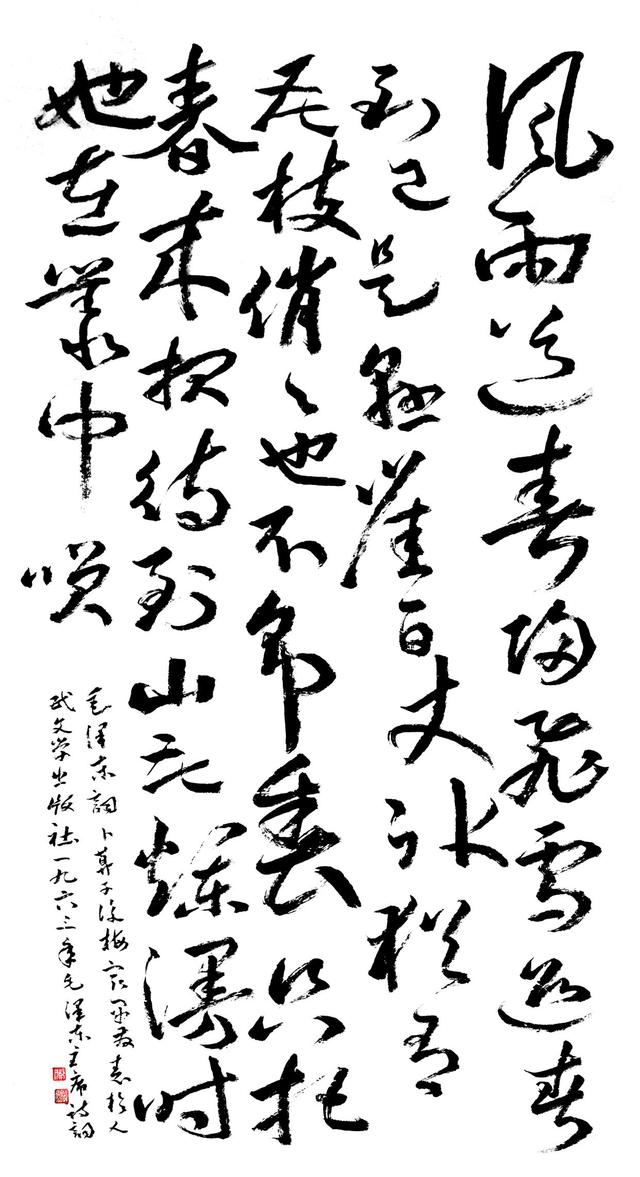 风雨送春归飞雪迎春
到已是悬崖百丈冰犹有
花枝俏〻也不争春只把
春来报待到山花烂漫时
她在丛中咲
毛泽东词卜算子咏梅最早发表于人
民文学出版社一九六三年毛泽东主席诗词